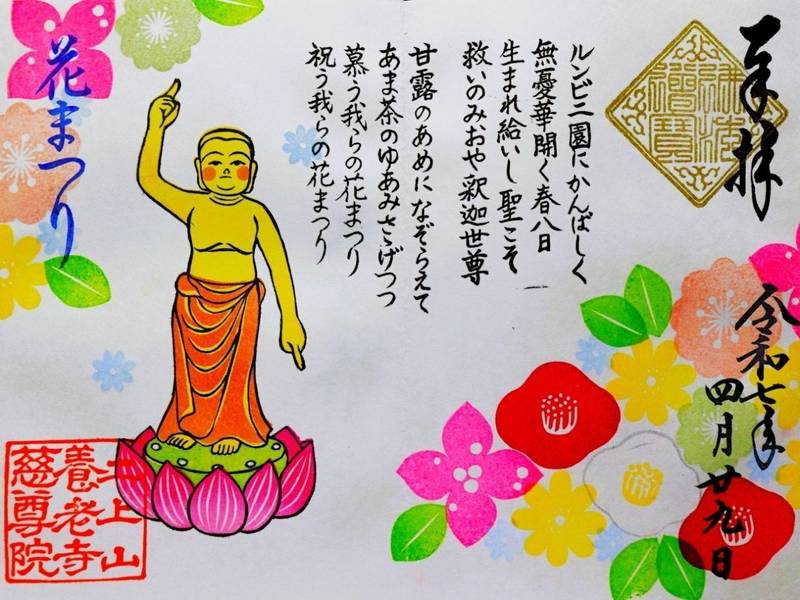 奉拝
令和七年
四月廿九日
ルンビニ園にかんばしく
無憂華開く春八日
生まれ給いし聖こそ
救いのみおや釈迦世尊
甘露のあめになぞらえて
あま茶のゆあみさゝげつつ
慕う我らの花まつり
祝う我らの花まつり
花まつり
井上山
養老寺
慈尊院